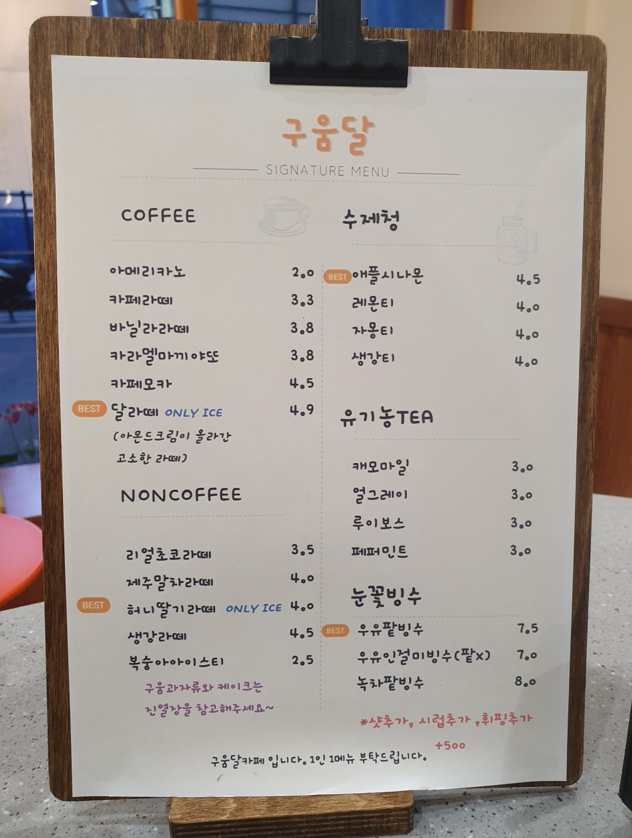 구움달
SIGNATURE MENU
COFFEE
아메리카노 2.0
카페라떼 3.3
바닐라라떼 3.8
카라멜마끼야또 3.8
카페모카 4.5
BEST 달라떼 ONLY ICE 4.9
(아몬드크림이 올라간
고소한 라떼)
NONCOFFEE
리얼초코라떼 3.5
제주말차라떼 4.0
BEST 허니딸기라떼 ONLY ICE 4.0
생강라떼 4.5
복숭아아이스티 2.5
구움과자류와 케이크는
진열장을 참고해주세요~
수제청
BEST 애플시나몬 4.5
레몬티 4.0
자몽티 4.0
생강티 4.0
유기농TEA
캐모마일 3.0
얼그레이 3.0
루이보스 3.0
페퍼민트 3.0
눈꽃빙수
BEST 우유팥빙수 7.5
우유인절미빙수(팥X) 7.0
녹차팥빙수 8.0
*샷추가, 시럽추가 ,휘핑추가
+500
구움달카페 입니다. 1인 1메뉴 부탁드립니다.